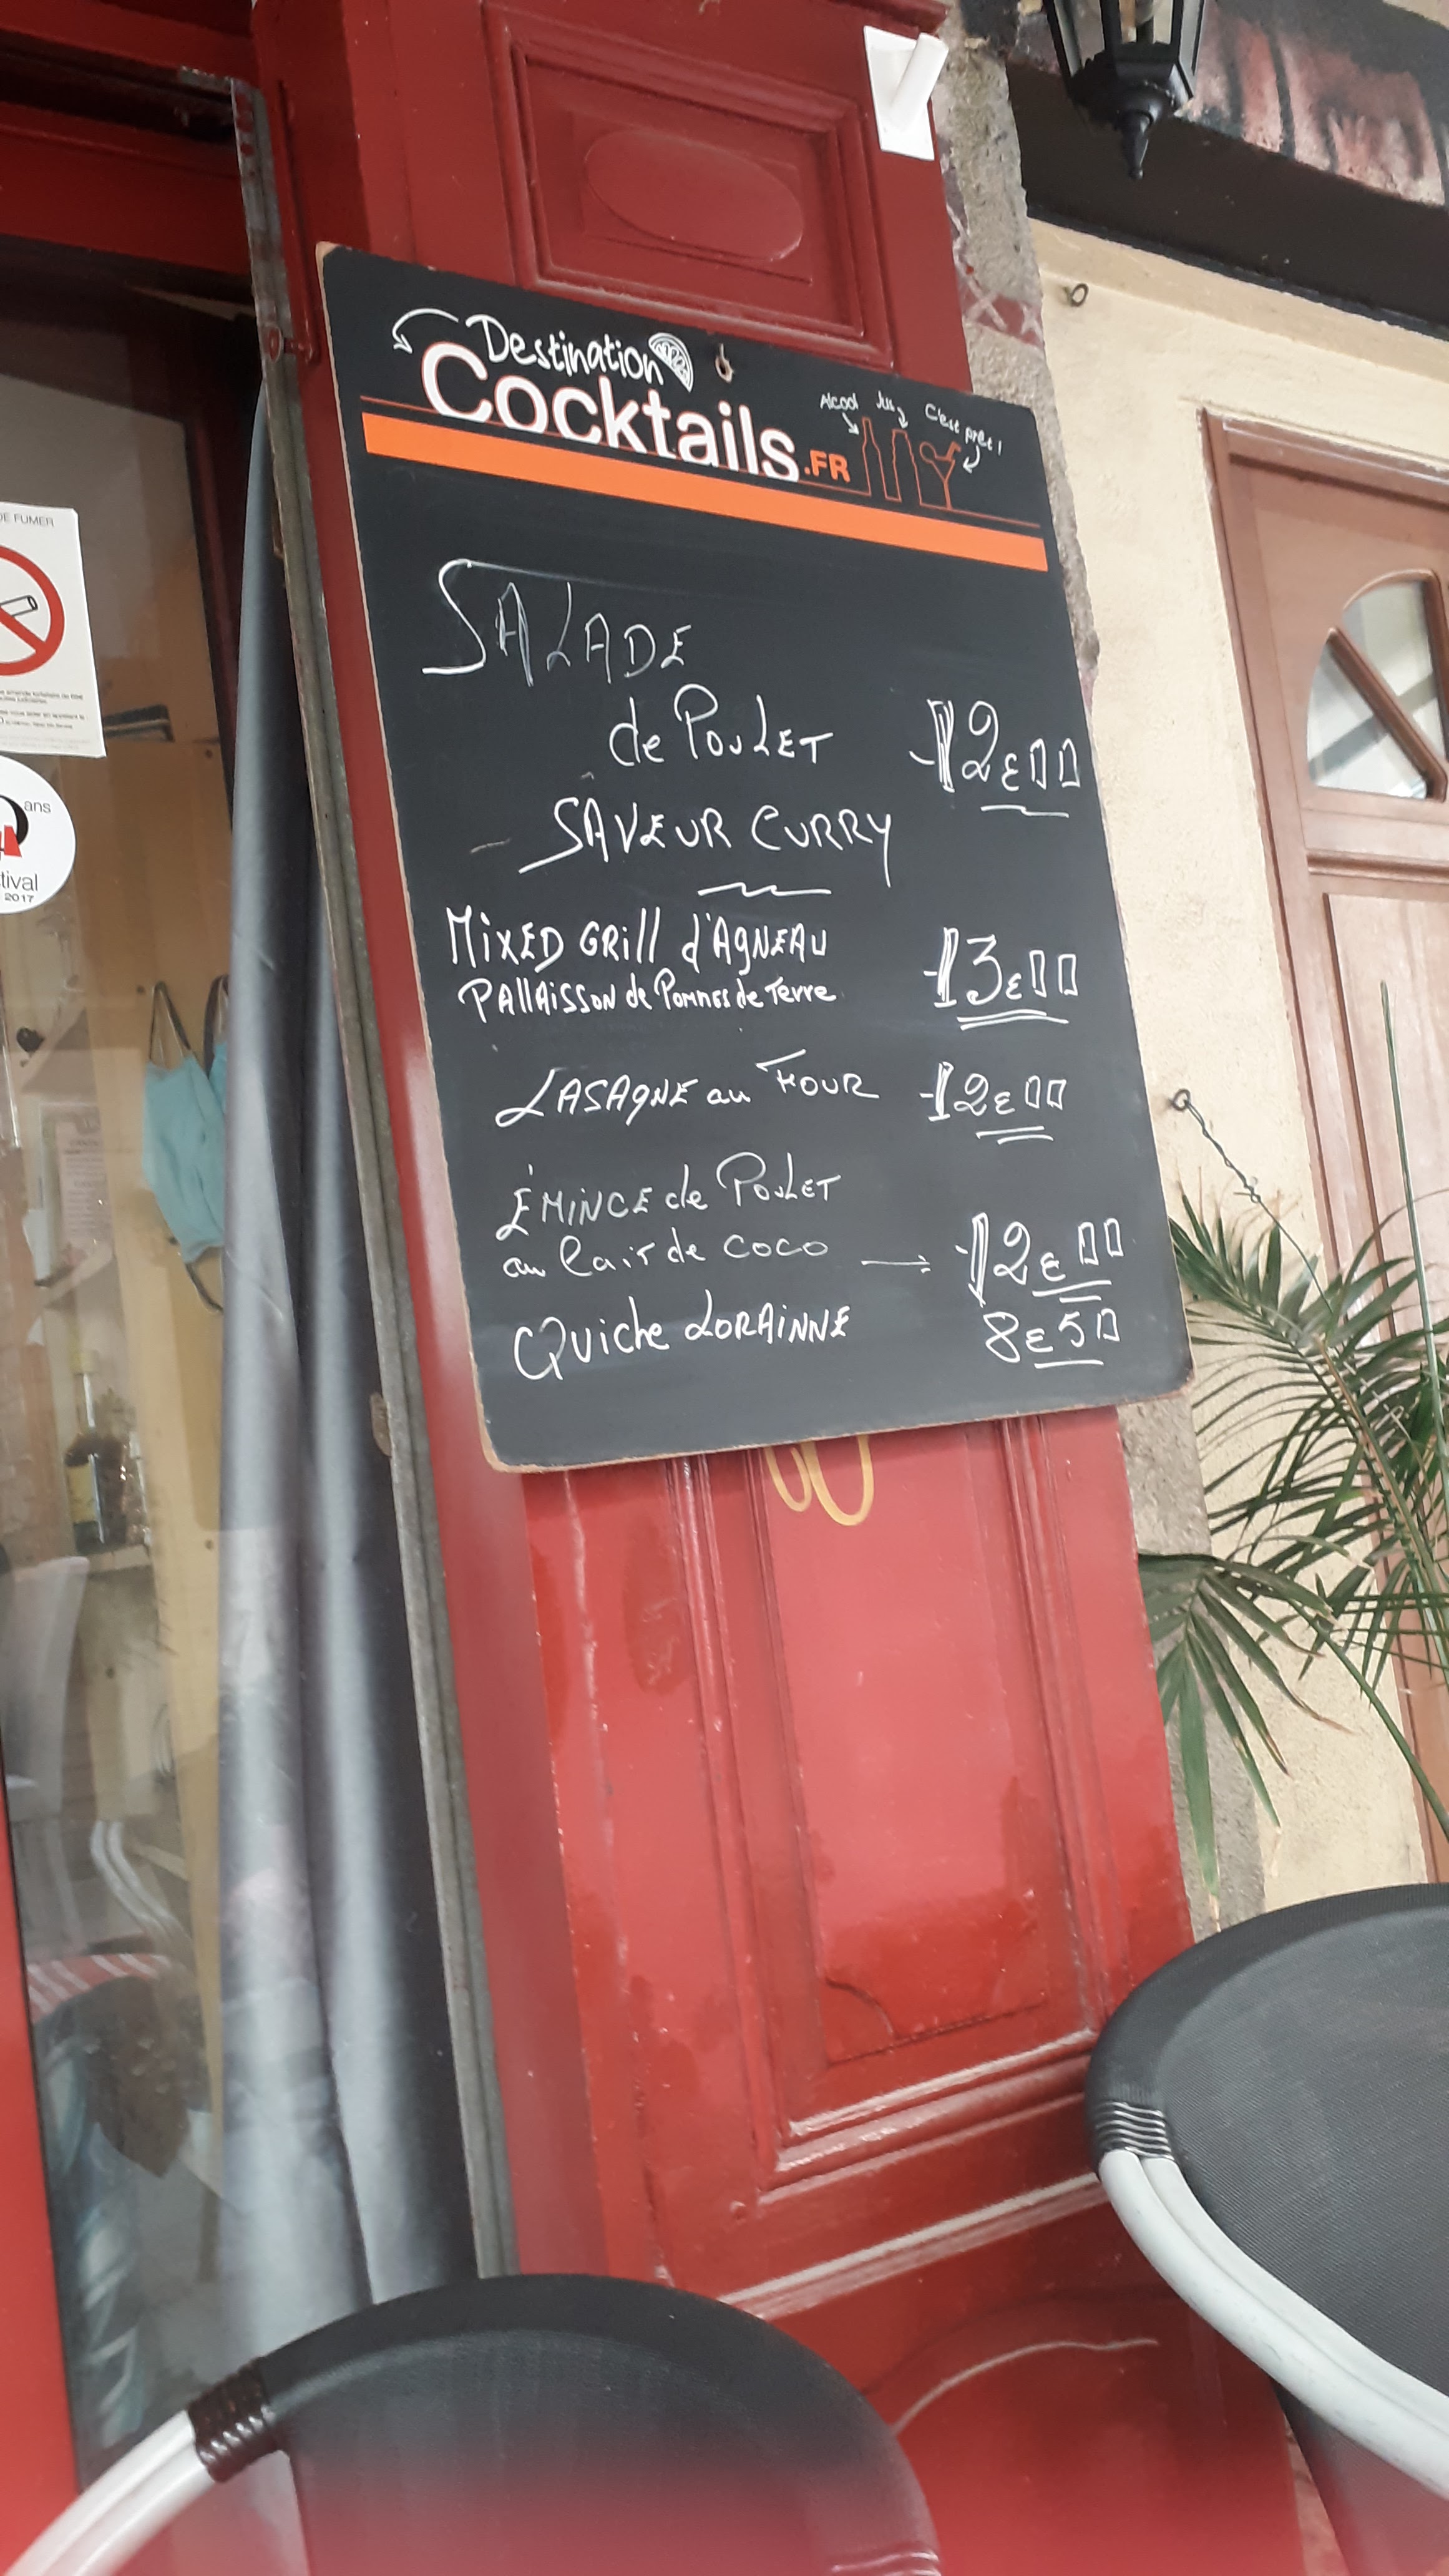 DE FUMER
ans
tival
2017
Destination
Cocktails.FR
Alcool Jus C'est prêt !
SALADE
de POULET 12€00
SAVEUR CURRY
MIXED GRill d'AGNEAU 13€00
PAllAissoN de Pommes de Terre
LASAGNE au FOUR 12€00
ÉMINCE de POULET
au lait de coco → 12€00
QUiche LORAiNNE 8€50